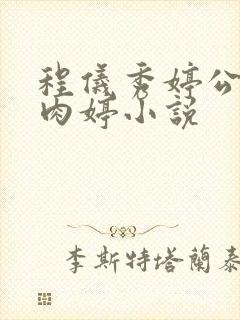 程儀秀婷公
肉婷小說
李斯特塔蘭泰